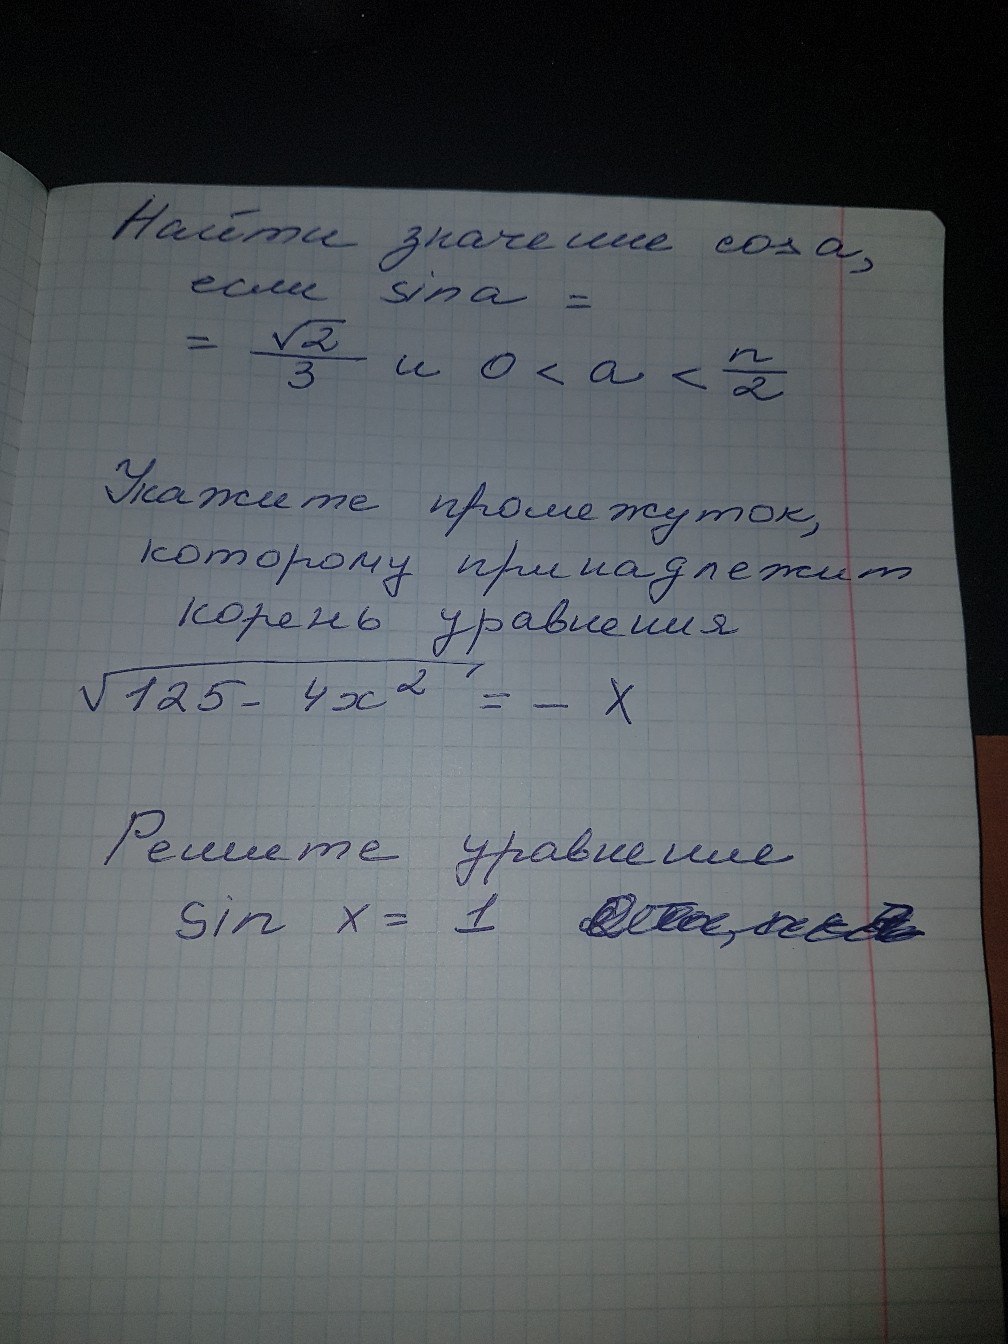 Найти значение cos a,
если sin a =
= √2/3 и 0 < a < п/2
Укажите промежуток,
которому принадлежит
корень уравнения
√125 - 4x² = - x
Решите уравнение
sin x = 1